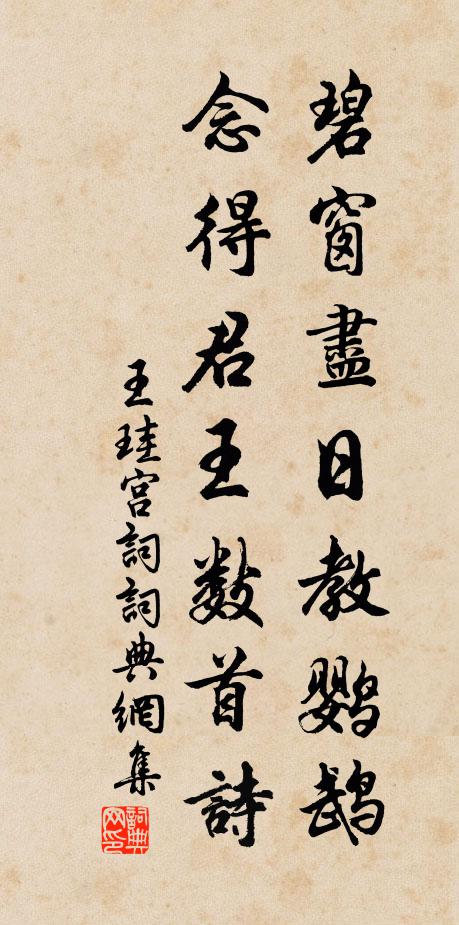 碧窗盡日教鹦鵡
念得君王数首詩
王珪宫詞詞典網集
詞典网印